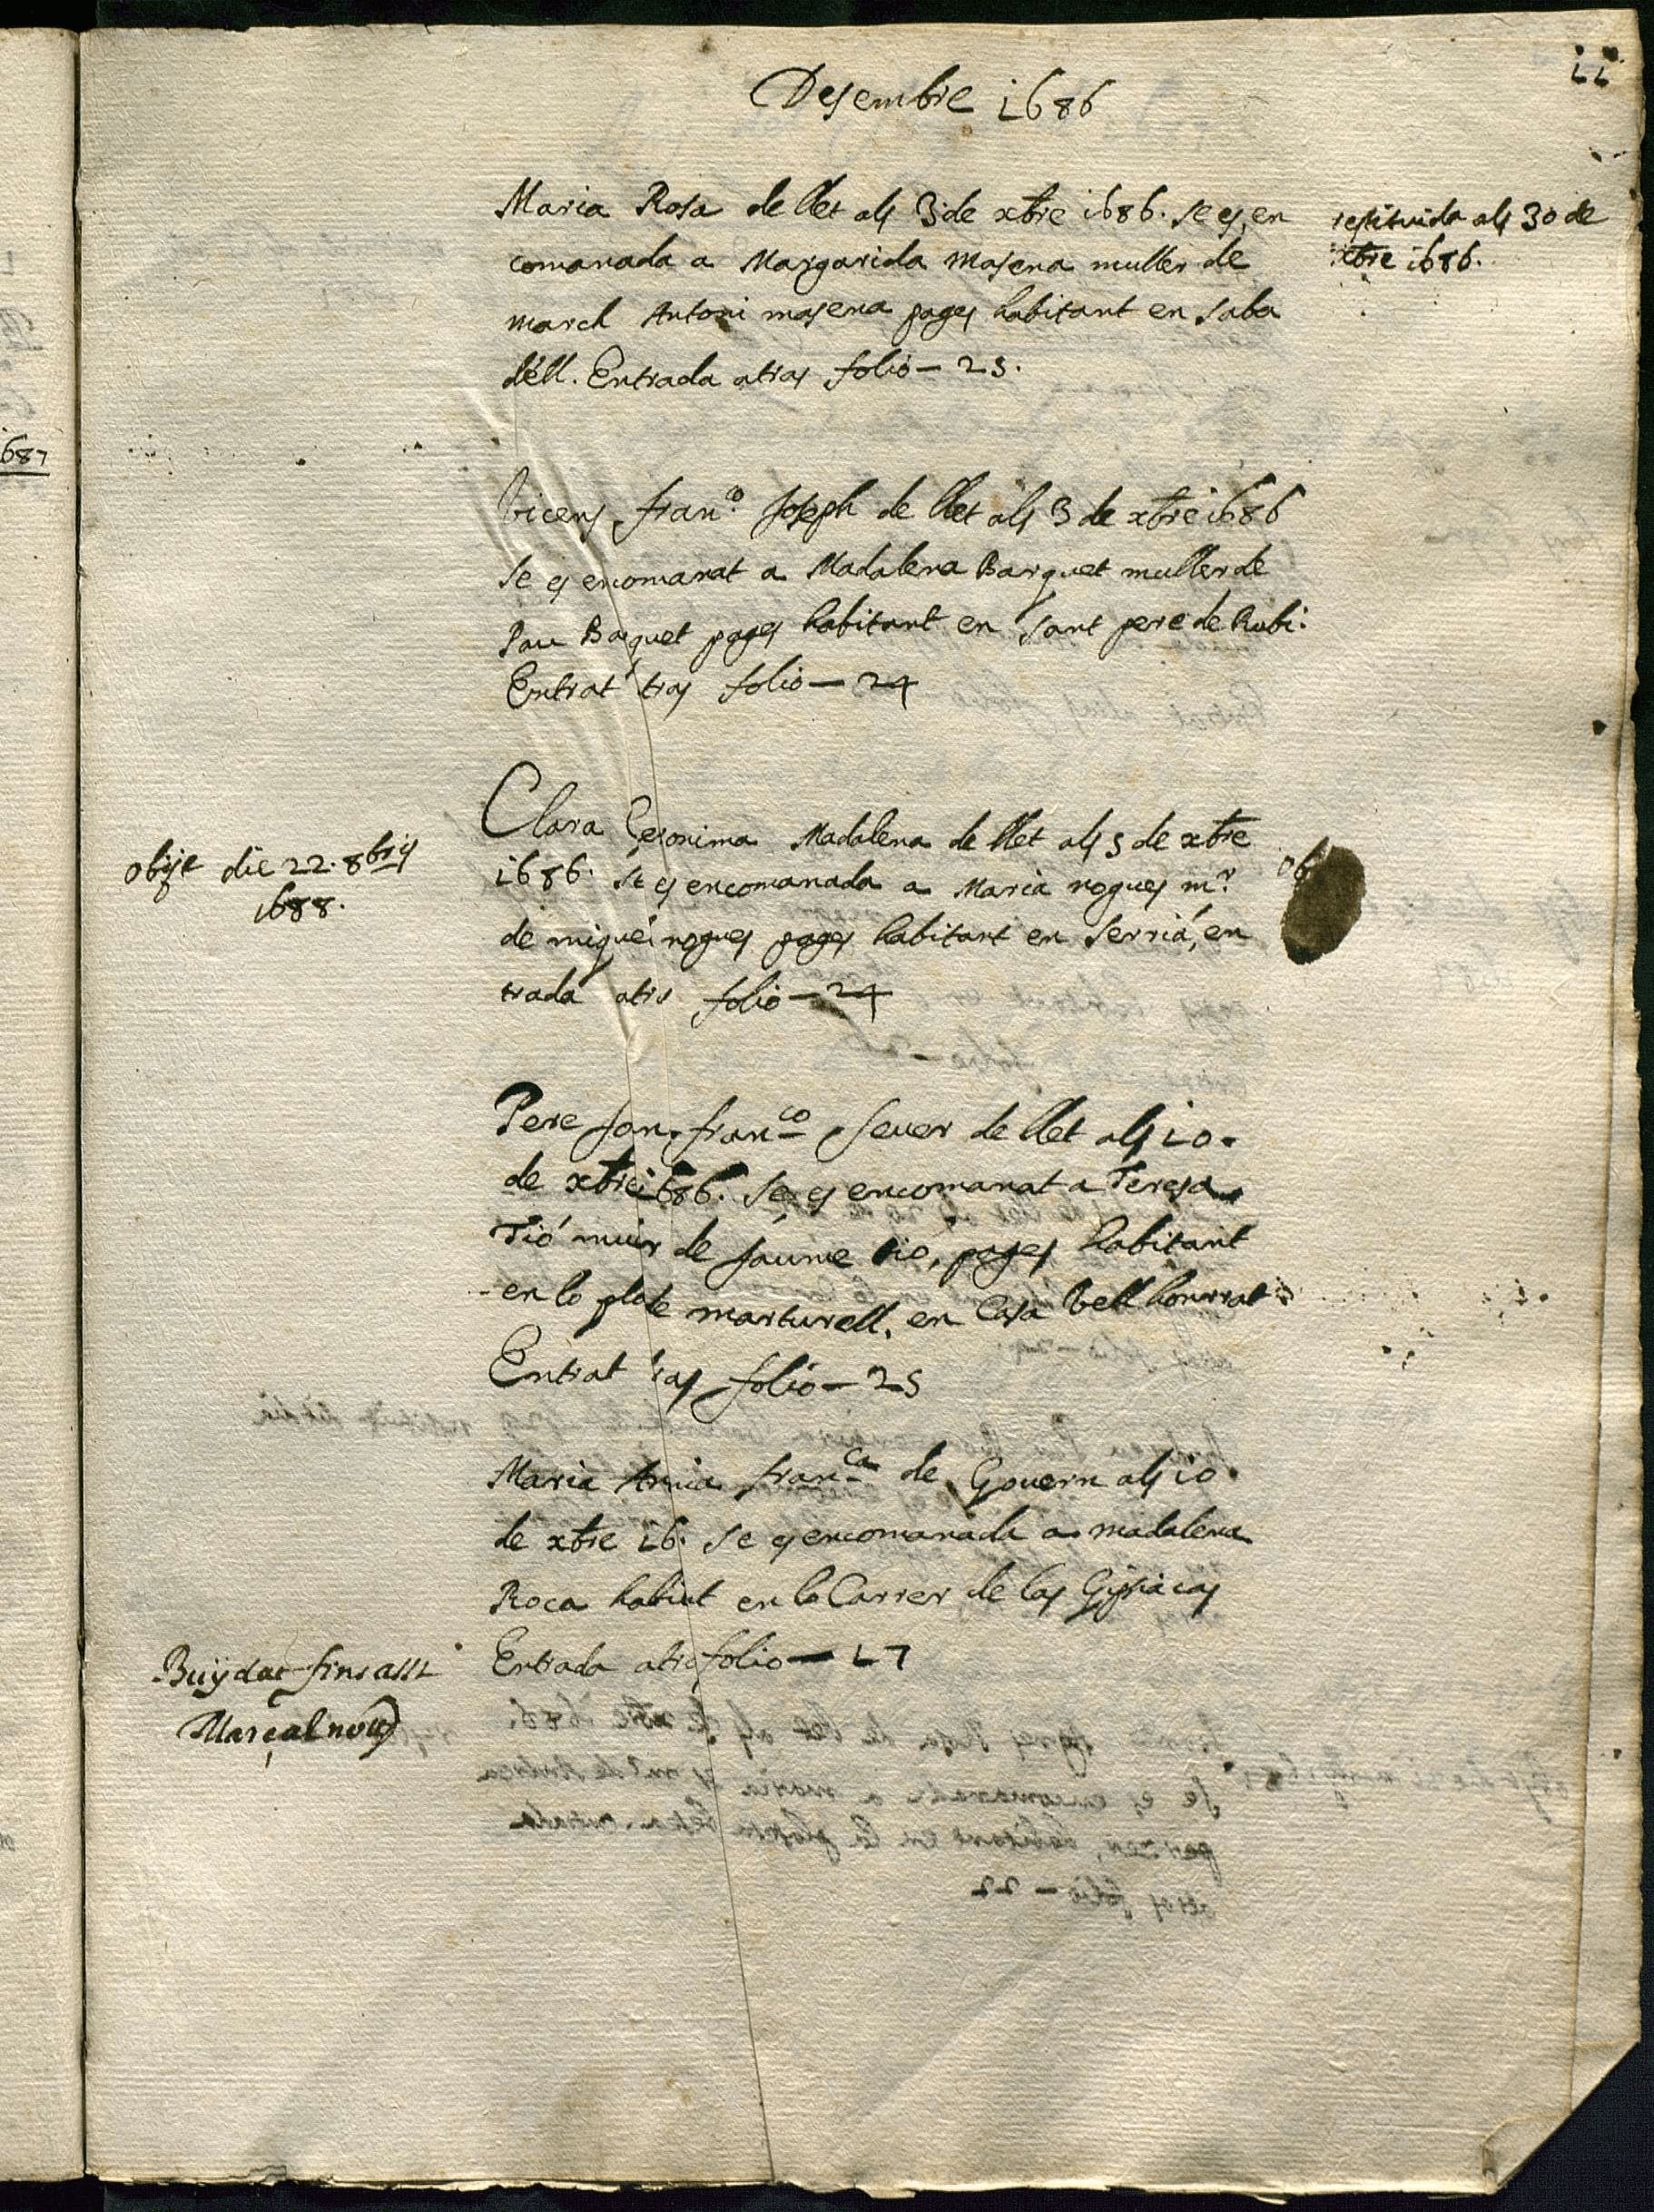 11
Desembre 1686
Maria Rosa de llet als 3 de xbre 1686. se es en
comanada a Margarida Masena muller de
March Antoni masena pages habitant en saba
dell. Entrada atras folio - 23.
restituida als 30 de
xbre 1686.
687
Vicens, fran.co Joseph de llet als 3 de xbre 1686
Se es encomanat a Madalena Barquet muller de
Pau Barquet pages habitant en sant pere de Rubi.
Entrat tras folio - 24
Clara Geronima Madalena de llet als 5 de xbre
1686. se es encomanada a Maria nogues mr.
de miquel nogues pages habitant en serriá, en
trada atrs folio - 24
obijt die 22. 8bris
1688.
ob
Pere Jon. franco Sever de llet als 10.
de xbre 1686. Se es encomanat a Teresa
Tió muler de Jaume tio, pages habitant
en lo pla de marturell, en Casa Vell honrrat
Entrat tras folio - 25
Maria Anna franca de Govern als 10.
de xbre 16. se es encomanada a madalena
Roca habitat en lo Carrer de las Gipsiacas
Entrada atrs folio - 17
Buÿdat fins assi
Març al nou